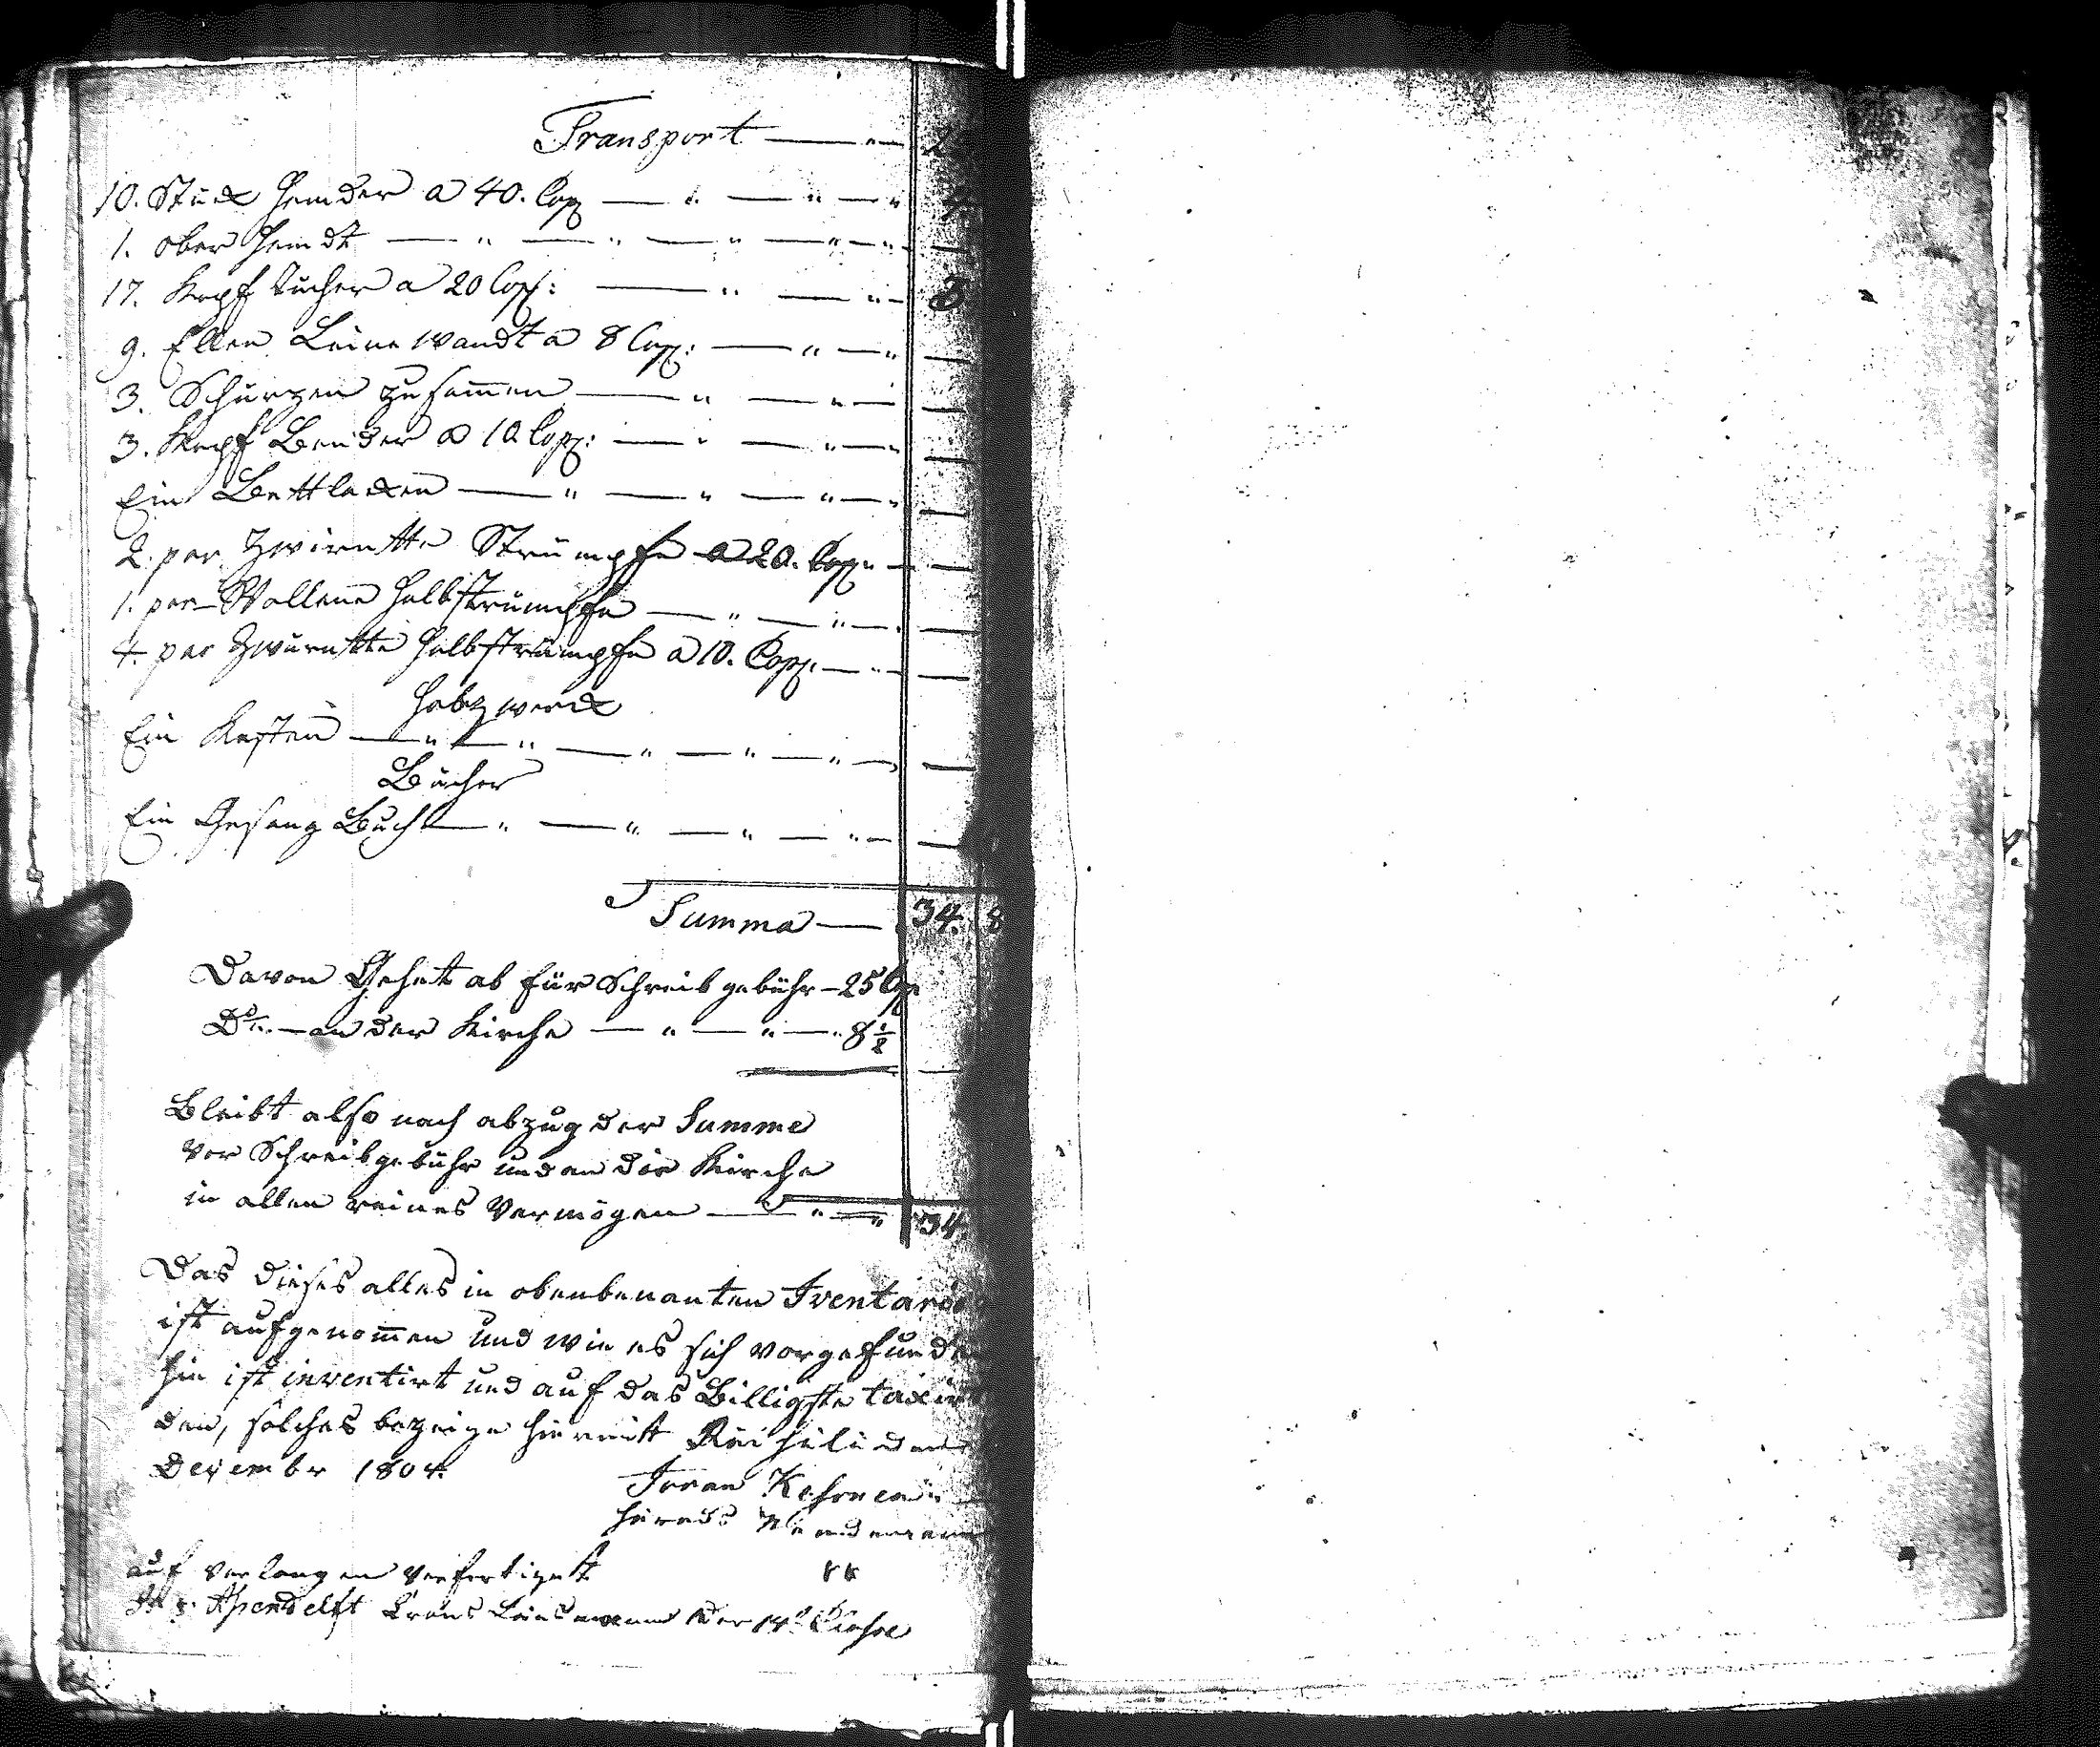 Transport — " —
10. Stück Hemder a 40. Cop — " — " — "
1. ober Hemdt — " — " — " — " — "
17. Kopf Tücher a 20 Cop: — " — " — 3
9. Ellen Leinewandt a 8 Cop: — " — "
3. Schürzen zusam̅en — " — " —
3. Kopf Bender a 10 Cop: — " — " — "
Ein Bettlacken — " — " — " — "
2. par Zwirntte Strümpfe a 20. Cop: —
1. par Wollene Halbstrümpfe — " — " —
4. par Zwürntte Halbstrümpfe a 10. Cop: — "
Holtzwerck
Ein Kasten — " — " — " — " — " —
Bücher
Ein Gesang Buch — " — " — " — " —
Summa — 34. 8
Davon Gehet ab für Schreib gebühr — 25 Cop
Do — an der Kirche — " — " — " 8 1/2
Bleibt also nach abzug der Summe
vor Schreibgebühr und an die Kirche
in allen reines Vermögen — " — " 34
Das dieses alles in obenbenanten Iventario
ist aufgenom̅en und wie es sich vorgefunden
hin ist inventirt und auf das Billigste taxirt
den, solches bezeige hiermitt
December 1804.
Härads
auf verlangen verfertigett
der 14